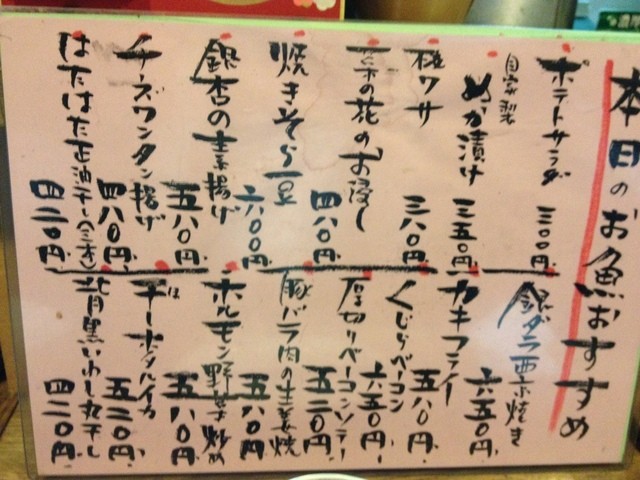 本日のお魚おすすめ
ポテトサラダ 三〇〇円
自家製 ぬか漬け 三五〇円
板ワサ 三八〇円
菜の花のお浸し 四八〇円
焼きそら豆 六〇〇円
銀杏の素揚げ 五八〇円
チーズワンタン揚げ 四八〇円
はたはた正油干し(三本) 四二〇円
銀ダラ西京焼き 六五〇円
カキフライ 五八〇円
くじらベーコン 六五〇円
厚切りベーコンソテー 五二〇円
豚バラ肉の生姜焼 五八〇円
ホルモン野菜炒め 五八〇円
ホタルイカ 五二〇円
背黒いわし丸干し 四二〇円